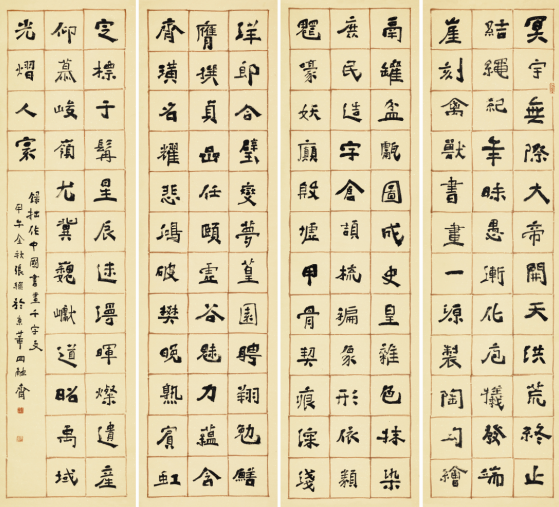 冥宇無際大帝開天洪荒終止
結繩紀年昧愚漸化庖犧發端
崖刻禽獸書畫一源製陶勾繪
鬲罐盆甗圖成史皇雜色抹染
庶民造字倉頡梳編象形依類
嚎妖殷墟甲骨契痕深淺
郎合璧變夢篁園聘翔勉鱔
膺撰貞品任頤虛谷魅力蘊含
齊璜名耀悲鴻破樊晚熟賓虹
定標于髯星辰述暉燦遺產
仰慕峻嶺尤冀巍巘道昭禹域
光熠人寰
錄拙作中國書畫千字文
甲午金秋張繼於京華四融齋